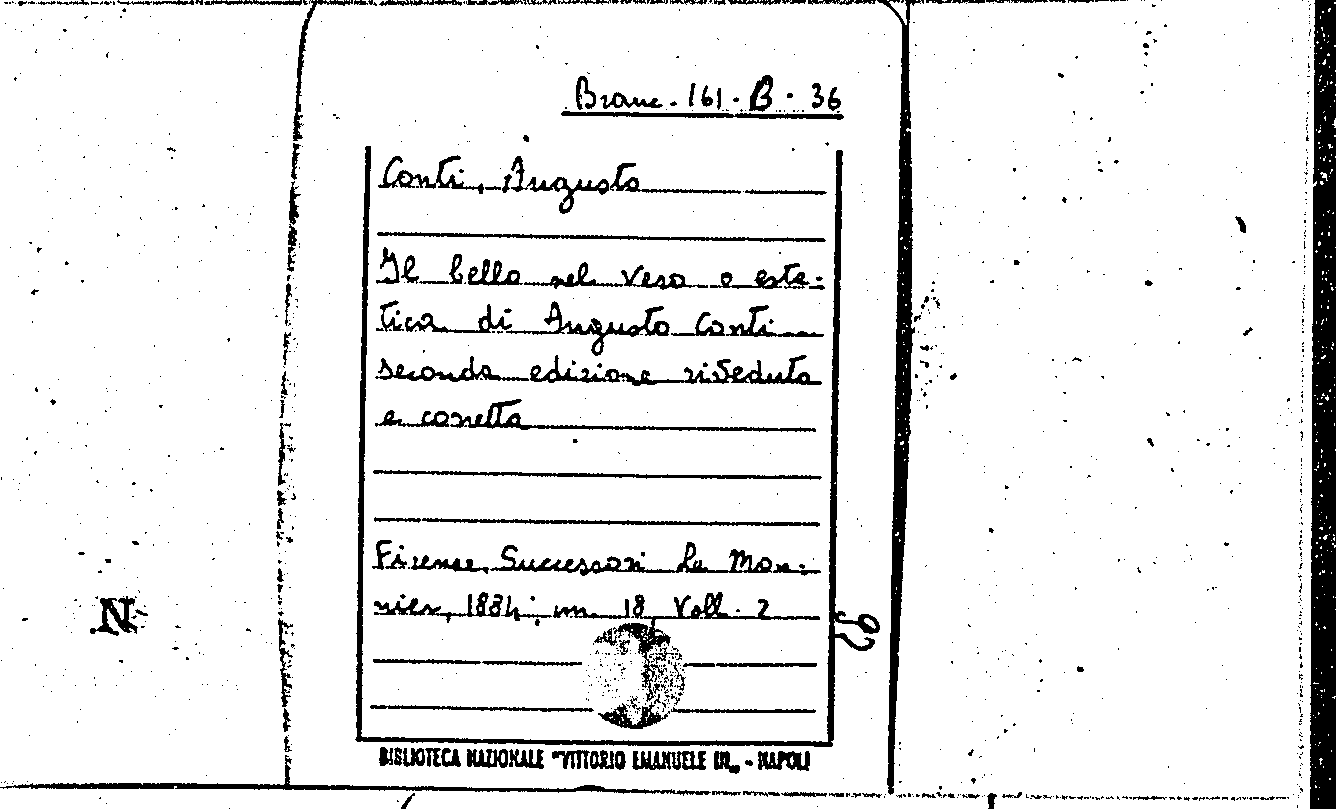 Branc. 161. B. 36
Conti, Augusto
Il bello nel vero o este-
tica di Augusto Conti
seconda edizione riveduta
e corretta
Firenze, Successori Le Mon-
nier, 1884; in 18, Voll. 2
92
N
BIBLIOTECA NAZIONALE "VITTORIO EMANUELE III„ - NAPOLI